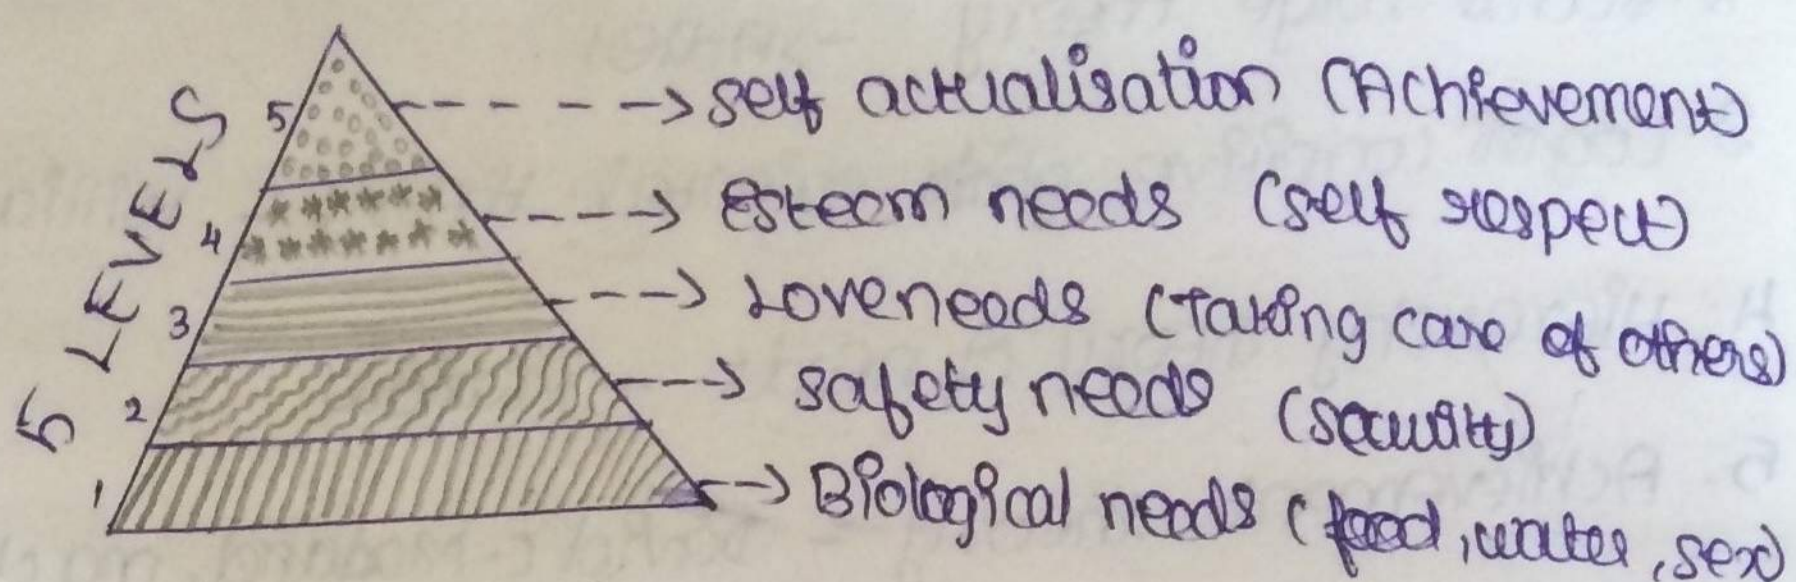 5 LEVELS
5 ----> self actualisation (Achievement)
4 ----> Esteem needs (self respect)
3 ---> Loveneeds (Taking care of others)
2 ---> safety needs (security)
1 --> Biological needs (food, water, sex)